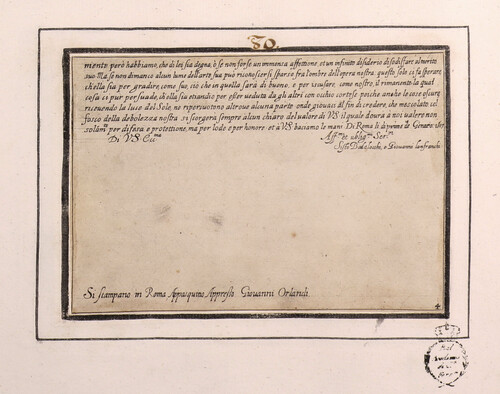 80.
mente però habbiamo, che di lei sia degna, ò se non forse un'immensa affettione, et un infinito disiderio di sodisfare al merito
suo Ma, se non dimanco alcun lume dell'arte sua può riconoscersi sparso fra l'ombre dell'opera nostra, questo solo ci fa sperare,
ch'ella sia per gradire, come sua, ciò che in quella sarà di buono, e per iscusare, come nostro, il rimanente. la qual
cosa ci pur persuade, ch'ella sia etiandio per esser veduta da gli altri con occhio cortese. poiche anche le cose oscure
riceuendo la luce del Sole, ne ripercuotono altroue alcuna parte. onde gioua ci al fin di credere, che mescolato col
fosco della debolezza nostra si scorgerà sempre alcun chiaro del ualore di V.S. il quale dourà a noi ualere non
solam.te per difesa e protettione, ma per lode e per honore. et a V.S. baciamo le mani Di Roma li di primo di Genaro.
Di V.S. Aff.mi et oblig.mi Ser.ri
Sisto Badalocchi, e Giouanni Lanfranchi
Si stampano in Roma Appasquino Appresso Giovanni Orlandi.
4